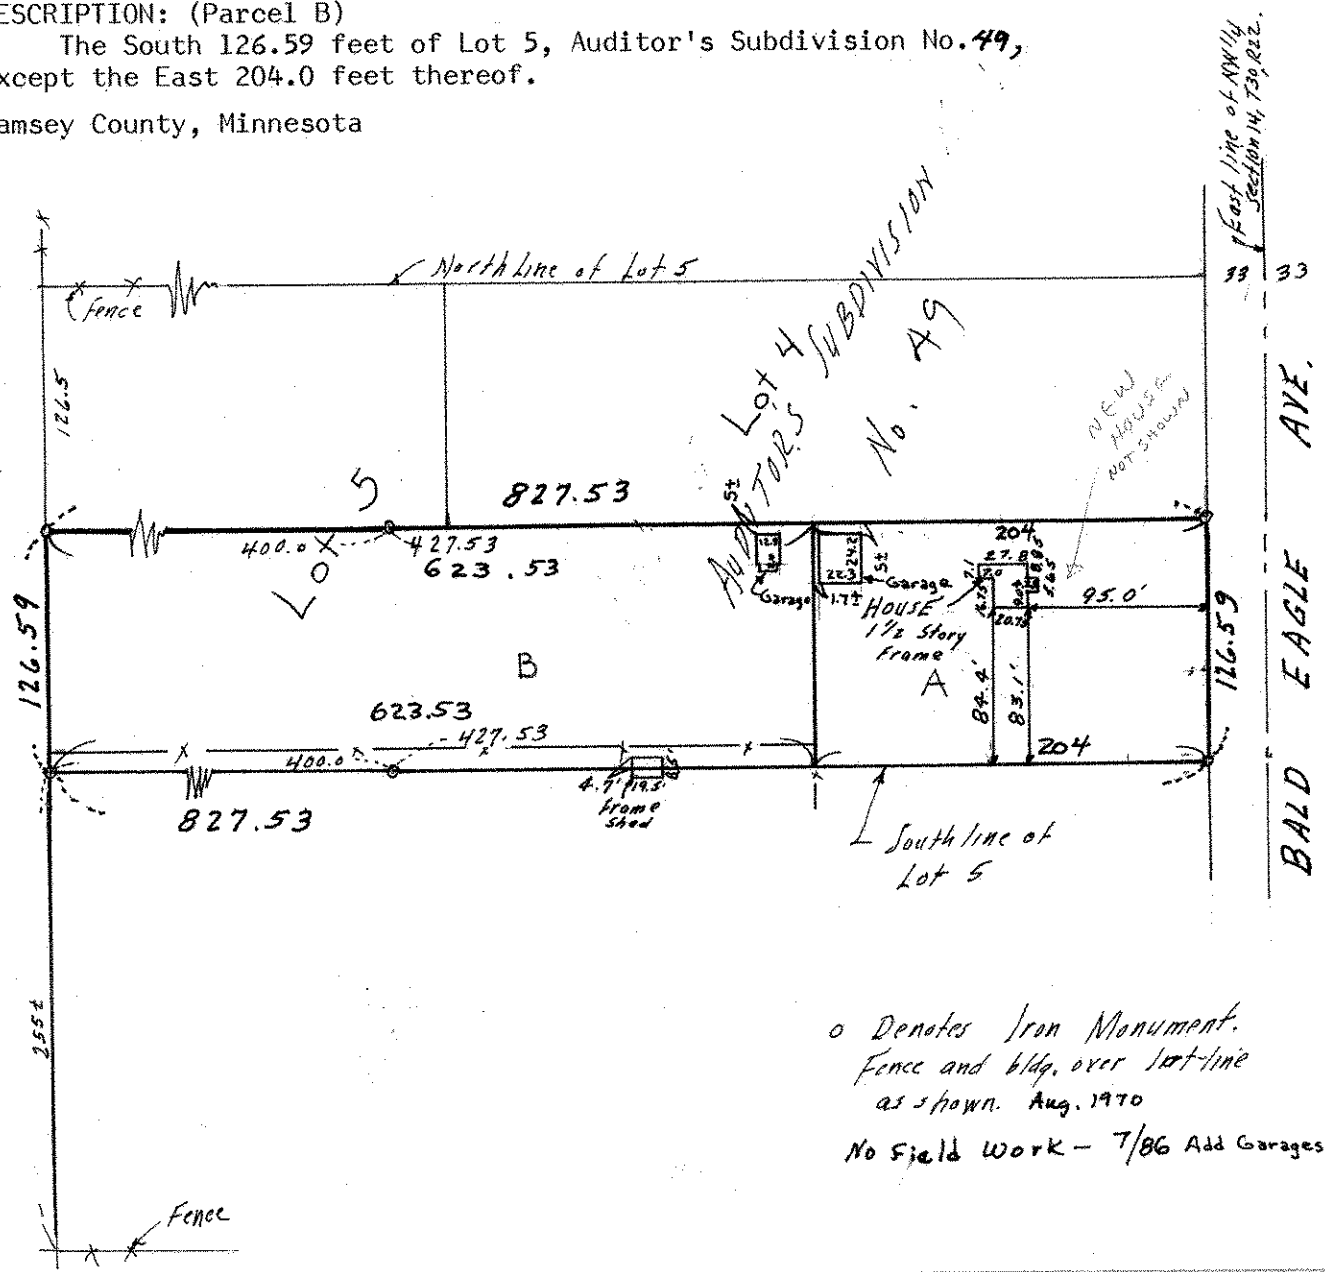 ESCRIPTION: (Parcel B)
The South 126.59 feet of Lot 5, Auditor's Subdivision No. 49,
xcept the East 204.0 feet thereof.
amsey County, Minnesota
East line of NW 1/4
Section 14, T30, R22.
North Line of Lot 5
33 33
Fence
126.5
Lot 4
AUDITORS SUBDIVISION
No. 49
NEW
HOUSE
NOT SHOWN
BALD EAGLE AVE.
5
827.53
5±
204
400.0
427.53
623.53
LO
12.8
24.2
5±
22.3
Garage
1.7±
Garage
27.8
7.1
8.85
5.65
20.75
95.0'
HOUSE
1 1/2 Story
Frame
126.59
B
A
84.4'
83.1'
126.59
623.53
427.53
400.0
204
4.7'
19.5'
frame
shed
827.53
South line of
Lot 5
255±
o Denotes Iron Monument.
Fence and bldg. over lot-line
as shown. Aug. 1970
No Field Work - 7/86 Add Garages
Fence